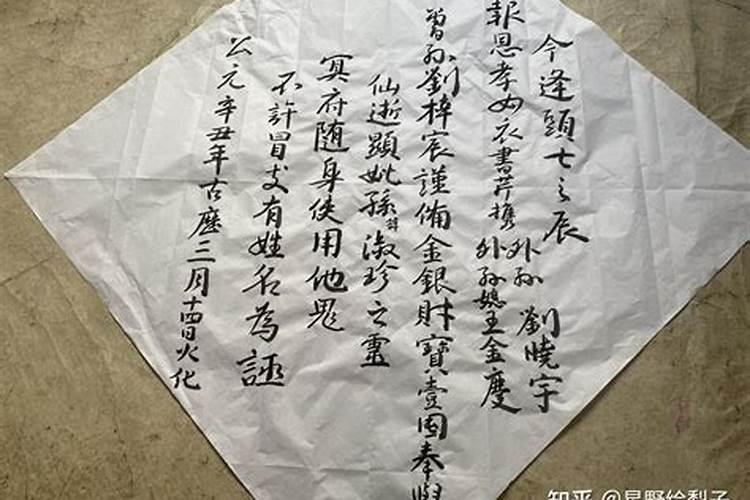 今逢頭七之辰
外孫 劉曉宇
報恩孝女衣書芹携外孫媳王金慶
曾孫劉梓宸謹俻金銀財寶壹囤奉與
仙逝顯妣孫 淑珍之靈
冥府随身使用他鬼
不許冒支有姓名為証
公元辛丑年古歷三月十四日火化
知乎